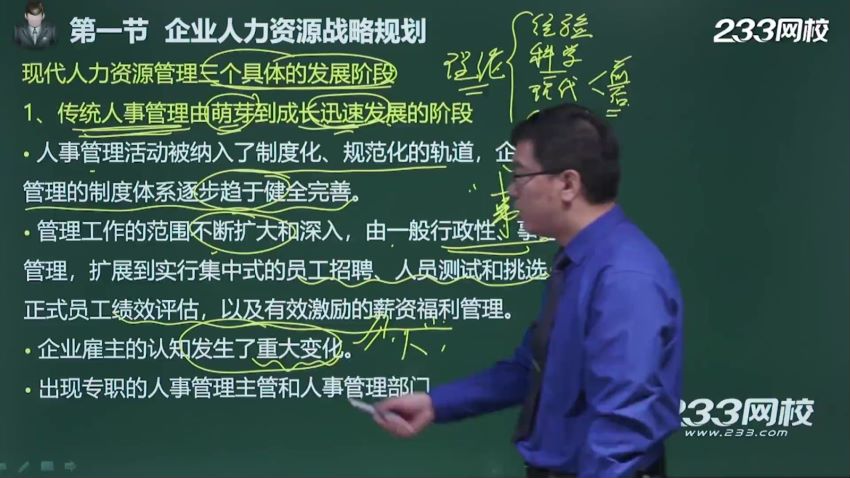 第一节 企业人力资源战略规划
233网校
现代人力资源管理三个具体的发展阶段
理论
经验
科学
现代
前
后
1、传统人事管理由萌芽到成长迅速发展的阶段
• 人事管理活动被纳入了制度化、规范化的轨道，企
管理的制度体系逐步趋于健全完善。
• 管理工作的范围不断扩大和深入，由一般行政性、事
管理，扩展到实行集中式的员工招聘、人员测试和挑选
正式员工绩效评估，以及有效激励的薪资福利管理。
• 企业雇主的认知发生了重大变化。
• 出现专职的人事管理主管和人事管理部门
233网校
www.233.com